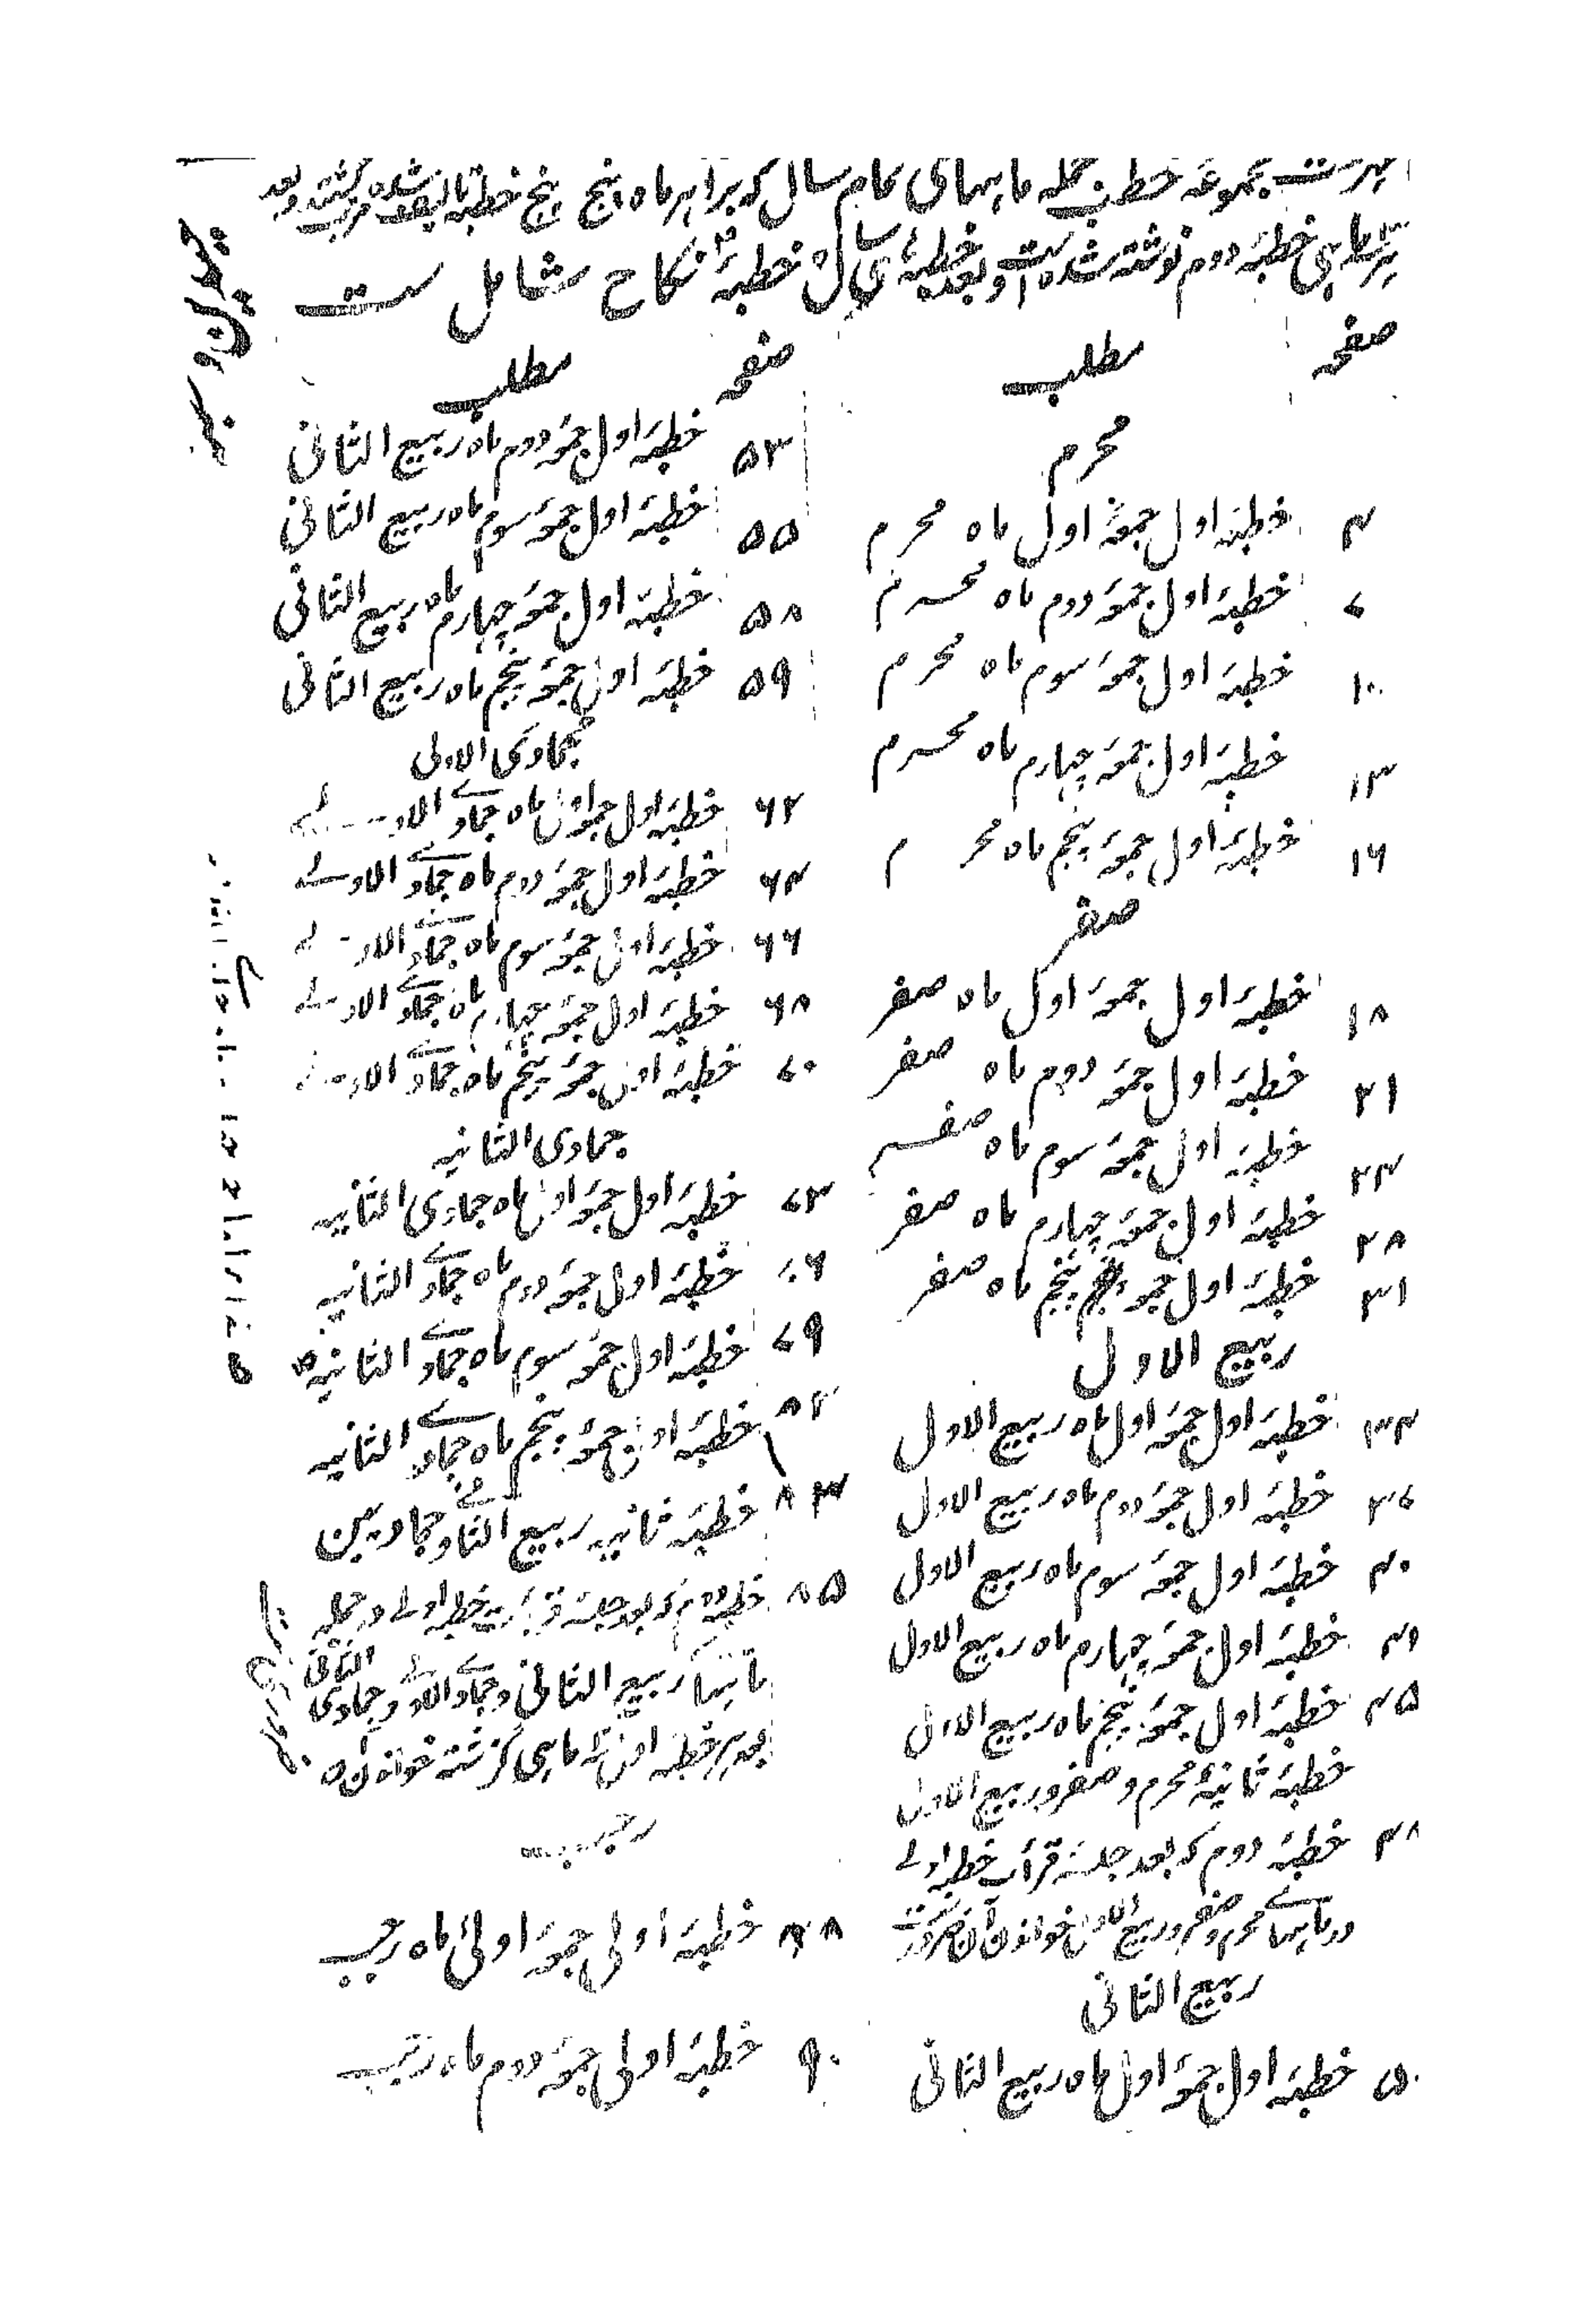 فهرست مجموعه خطب جمله ماههای تمام سال که برای هر ماه پنج پنج خطبه
هر سه ماهی خطبهٔ دوم نوشته شده است و بعد خطبهٔ نکاح شامل ست
صفحه مطلب
محرم
۴ خطبهٔ اول جمعهٔ اول ماه محرم
۷ خطبهٔ اول جمعهٔ دوم ماه محرم
۱۰ خطبهٔ اول جمعهٔ سوم ماه محرم
۱۳ خطبهٔ اول جمعهٔ چهارم ماه محرم
۱۶ خطبهٔ اول جمعهٔ پنجم ماه محرم
صفر
۱۸ خطبهٔ اول جمعهٔ اول ماه صفر
۲۱ خطبهٔ اول جمعهٔ دوم ماه صفر
۲۴ خطبهٔ اول جمعهٔ سوم ماه صفر
۲۸ خطبهٔ اول جمعهٔ چهارم ماه صفر
۳۱ خطبهٔ اول جمعهٔ پنجم ماه صفر
ربیع الاول
۳۴ خطبهٔ اول جمعهٔ اول ماه ربیع الاول
۳۷ خطبهٔ اول جمعهٔ دوم ماه ربیع الاول
۴۰ خطبهٔ اول جمعهٔ سوم ماه ربیع الاول
خطبهٔ اول جمعهٔ چهارم ماه ربیع الاول
۴۵ خطبهٔ اول جمعهٔ پنجم ماه ربیع الاول
خطبهٔ ثانیهٔ محرم و صفر و ربیع الاول
۴۸ خطبهٔ دوم که بعد جلسهٔ قرأت خطبه اولے
در ماههاے محرم و صفر و ربیع الاول خواندن آن ضرورست
ربیع الثانی
۵۰ خطبهٔ اول جمعهٔ اول ماه ربیع الثانی
صفحه مطلب
۵۳ خطبهٔ اول جمعهٔ دوم ماه ربیع الثانی
۵۵ خطبهٔ اول جمعهٔ سوم ماه ربیع الثانی
۵۸ خطبهٔ اول جمعهٔ چهارم ماه ربیع الثانی
۵۹ خطبهٔ اول جمعهٔ پنجم ماه ربیع الثانی
جمادی الاولی
۶۲ خطبهٔ اول جمعهٔ اول ماه جمادے الاولے
۶۴ خطبهٔ اول جمعهٔ دوم ماه جمادے الاولے
۶۶ خطبهٔ اول جمعهٔ سوم ماه جمادے الاولے
۶۸ خطبهٔ اول جمعهٔ چهارم ماه جمادے الاولے
۷۰ خطبهٔ اول جمعهٔ پنجم ماه جمادے الاولے
جمادی الثانیه
۷۳ خطبهٔ اول جمعهٔ اول ماه جمادی الثانیه
۷۶ خطبهٔ اول جمعهٔ دوم ماه جمادے الثانیه
۷۹ خطبهٔ اول جمعهٔ سوم ماه جمادے الثانیه
۸۲ خطبهٔ اول جمعهٔ پنجم ماه جمادے الثانیه
۸۳ خطبهٔ ثانیه ربیع الثانے و جمادیین
۸۵ خطبه دوم که بعد جلسهٔ قرأت خطبه اولے در جمله
ماههاے ربیع الثانی و جمادے الاولے و جمادی الثانی
بعد هر خطبه اول سه ماهی گزشته خواندن
رجب
۸۸ خطبهٔ اولی جمعهٔ اولیٰ ماه رجب
۹۰ خطبهٔ اولی جمعهٔ دوم ماه رجب